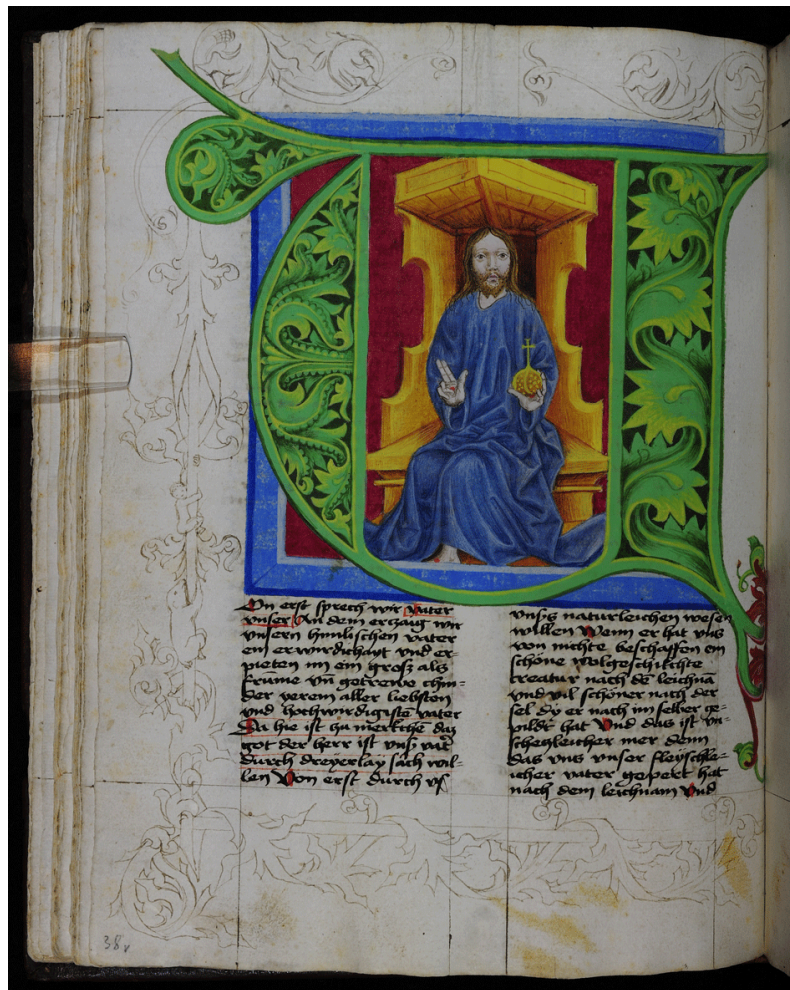 On erst sprech wir vater
vnser An dem erczaug wir
vnsern himlischen vater
ein erwirdichayt vnd er-
pieten im ein grosz als
frume vn̄ getrewe chin-
der yerem aller liebsten
vnd hochwirdigistē vater
Da hie ist zu merkchē daz
got der herr ist vnsʾ vatʾ
durch dreyerlay sach wil-
len Von erst durch vſ
vnsʾs naturleichen wesen
willen Wenn er hat vns
von nichte beschaffen ein
schöne wolgeschikchte
creatur nach dē leichnā
vnd vil schöner nach der
sel dy er nach im selber ge-
pildt hat Vnd das ist vn-
schegleicher mer denn
das vns vnser fleyschle-
icher vater gepert hat
nach dem leichnam Vnd
38v